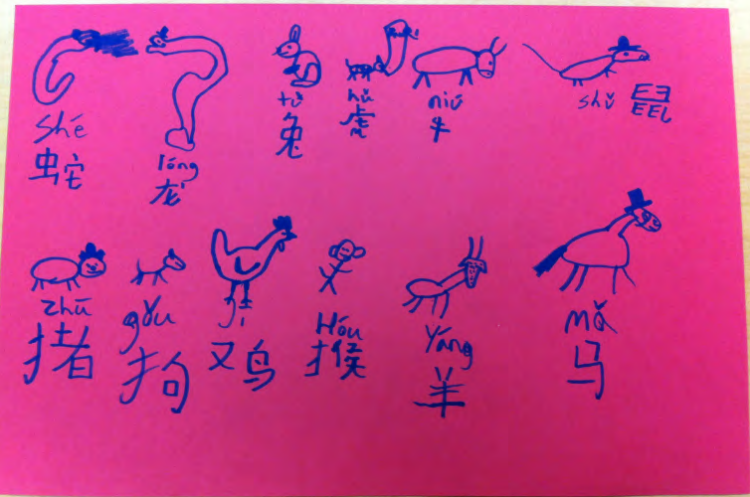 Shé
蛇
lóng
龙
tù
兔
hǔ
虎
niú
牛
shǔ
鼠
zhū
猪
gǒu
狗
jī
鸡
Hóu
猴
Yáng
羊
mǎ
马